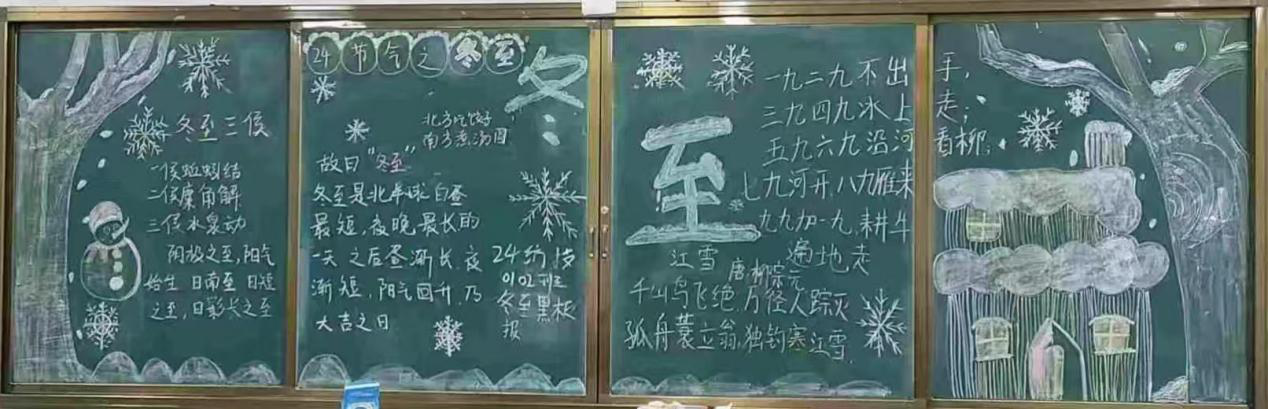 冬至三候
一候蚯蚓结
二候麋角解
三候水泉动
阴极之至,阳气
始生 日南至 日短
之至,日影长之至
24节气之冬至
冬
北方吃饺子
南方煮汤圆
故曰“冬至”
冬至是北半球白昼
最短,夜晚最长的
一天 之后昼渐长 夜
渐短,阳气回升,乃
大吉之日
24纺技
0102班
冬至黑板
报
至
一九二九不出手,
三九四九冰上走;
五九六九沿河看柳,
七九河开,八九雁来
九九加一九,耕牛
遍地走
江雪
唐 柳宗元
千山鸟飞绝,万径人踪灭
孤舟蓑立翁,独钓寒江雪.